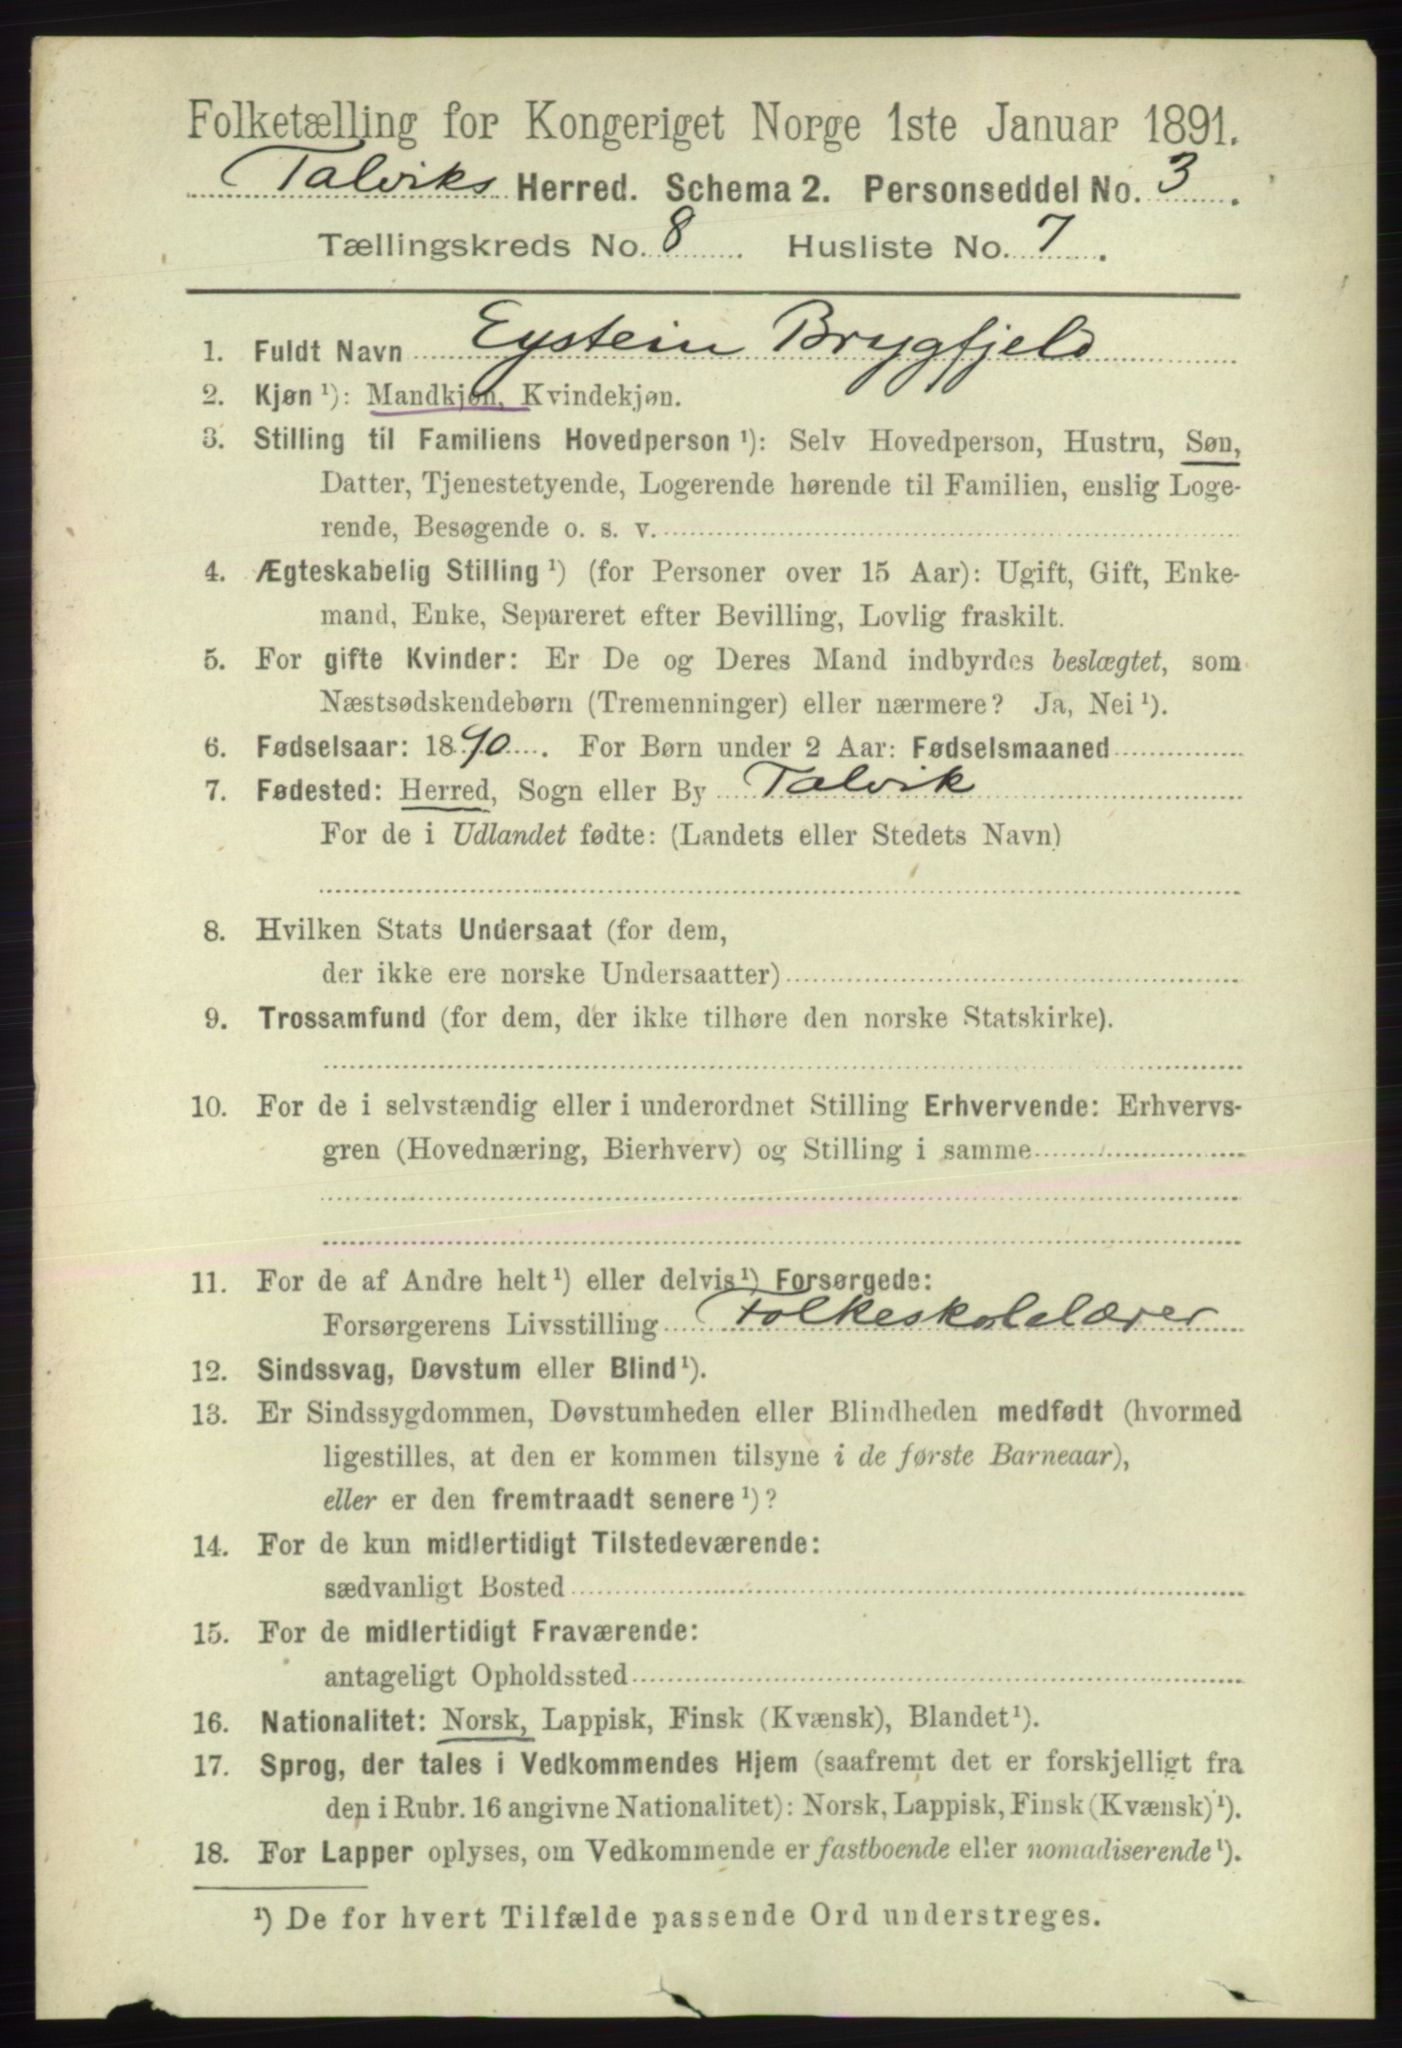 Folketælling for Kongeriget Norge 1ste Januar 1891.
Talviks Herred. Schema 2. Personseddel No. 3.
Tællingskreds No. 8. Husliste No. 7.
1. Fuldt Navn Eystein Brygfjeld
2. Kjøn ¹): Mandkjøn, Kvindekjøn.
3. Stilling til Familiens Hovedperson ¹): Selv Hovedperson, Hustru, Søn,
Datter, Tjenestetyende, Logerende hørende til Familien, enslig Loge-
rende, Besøgende o. s. v.
4. Ægteskabelig Stilling ¹) (for Personer over 15 Aar): Ugift, Gift, Enke-
mand, Enke, Separeret efter Bevilling, Lovlig fraskilt.
5. For gifte Kvinder: Er De og Deres Mand indbyrdes beslægtet, som
Næstsødskendebørn (Tremenninger) eller nærmere? Ja, Nei ¹).
6. Fødselsaar: 1890. For Børn under 2 Aar: Fødselsmaaned
7. Fødested: Herred, Sogn eller By Talvik
For de i Udlandet fødte: (Landets eller Stedets Navn)
8. Hvilken Stats Undersaat (for dem,
der ikke ere norske Undersaatter)
9. Trossamfund (for dem, der ikke tilhøre den norske Statskirke).
10. For de i selvstændig eller i underordnet Stilling Erhvervende: Erhvervs-
gren (Hovednæring, Bierhverv) og Stilling i samme
11. For de af Andre helt ¹) eller delvis ¹) Forsørgede:
Forsørgerens Livsstilling Folkeskolelærer
12. Sindssvag, Døvstum eller Blind ¹).
13. Er Sindssygdommen, Døvstumheden eller Blindheden medfødt (hvormed
ligestilles, at den er kommen tilsyne i de første Barneaar),
eller er den fremtraadt senere ¹)?
14. For de kun midlertidigt Tilstedeværende:
sædvanligt Bosted
15. For de midlertidigt Fraværende:
antageligt Opholdssted
16. Nationalitet: Norsk, Lappisk, Finsk (Kvænsk), Blandet ¹).
17. Sprog, der tales i Vedkommendes Hjem (saafremt det er forskjelligt fra
den i Rubr. 16 angivne Nationalitet): Norsk, Lappisk, Finsk (Kvænsk) ¹).
18. For Lapper oplyses, om Vedkommende er fastboende eller nomadiserende ¹).
¹) De for hvert Tilfælde passende Ord understreges.